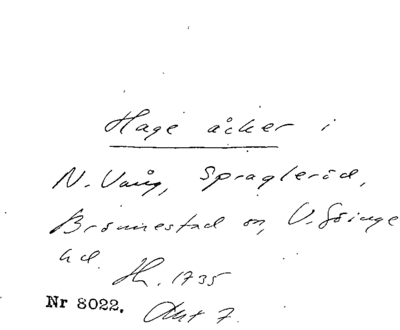 Hage åcker i
N. Vång, Spragleröd,
Brönnestad sn, V. Göinge
hd. Hh. 1735
Nr 8022. Akt 7.